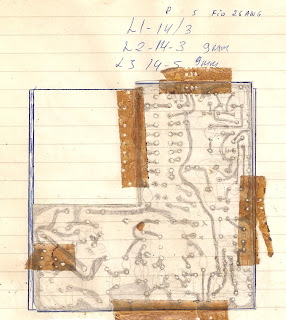 P S Fio 26 AWG
L1-14/3
L2-14-3 9mm
L3 14-5 9mm